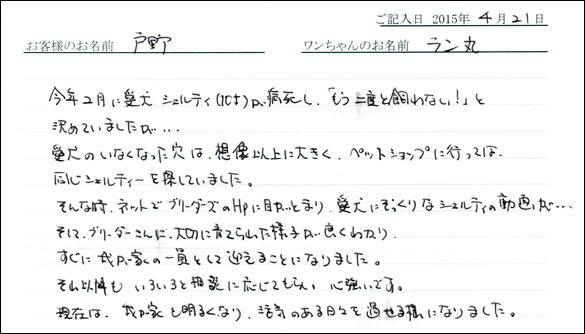 ご記入日 2015年 4月21日
お客様のお名前 戸野 ワンちゃんのお名前 ラン丸
今年2月に愛犬シェルティ(10才)が病死し、「もう二度と飼わない!」と
決めていましたが…
愛犬のいなくなった穴は、想像以上に大きく、ペットショップに行っては、
同じシェルティーを探していました。
そんな時、ネットでブリーダーズのHpに目がとまり、愛犬にそっくりなシェルティの動画が…
そして、ブリーダーさんに、大切に育てられた様子が良くわかり、
すぐに我が家の一員として迎えることになりました。
それ以降も いろいろと相談に応じてもらい 心強いです。
現在は、我が家も明るくなり、活気のある日々を過せる様になりました。